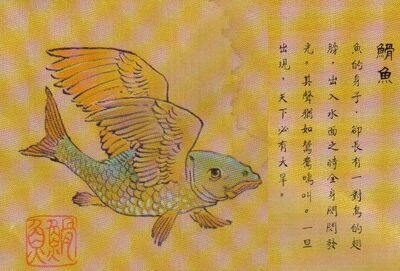 䱻魚
魚的身子，卻長有一對鳥的翅
膀，出入水面之時全身閃閃發
光。其聲猶如鴛鴦鳴叫。一旦
出現，天下必有大旱。
䱻魚